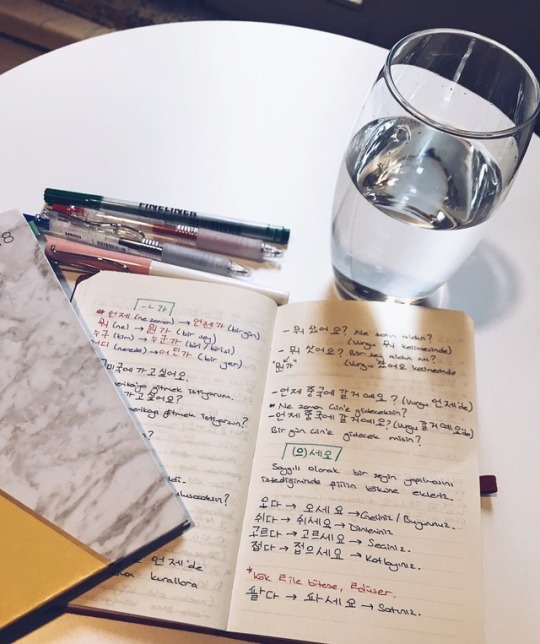 FINELINER
8
-ㄴ가
* 언제 (ne zaman) → 언젠가 (bir gün)
뭐 (ne) → 뭔가 (bir şey)
누구 (kim) → 누군가 (biri / birisi)
어디 (nerede) → 어딘가 (bir yer)
미국에 가고 싶어요.
gitmek istiyorum.
가고 싶어요?
gitmek istiyorsun?
언제'de
kurallara
- 뭐 샀어요? Ne satın aldın?
(Vurgu 뭐 kelimesinde)
- 뭐 샀어요? Bir şey aldın mı?
"뭔가" (Vurgu 샀어요 kelimesinde
- 언제 중국에 갈 거예요? (Vurgu 언제'de)
* Ne zaman Çin'e gideceksin?
- 언제 중국에 갈 거예요? (Vurgu 갈 거예요'de)
Bir gün Çin'e gidecek misin?
(으)세요
Saygılı olarak bir şeyin yapılmasını
istediğimizde fiilin köküne ekleriz.
오다 → 오세요 → Geliniz / Buyurunuz.
쉬다 → 쉬세요 → Dinleniniz
고르다 → 고르세요 → Seçiniz.
접다 → 접으세요 → Katlayınız.
* Kök ㄹ ile biterse, ㄹ düşer.
팔다 → 파세요 → Satınız.